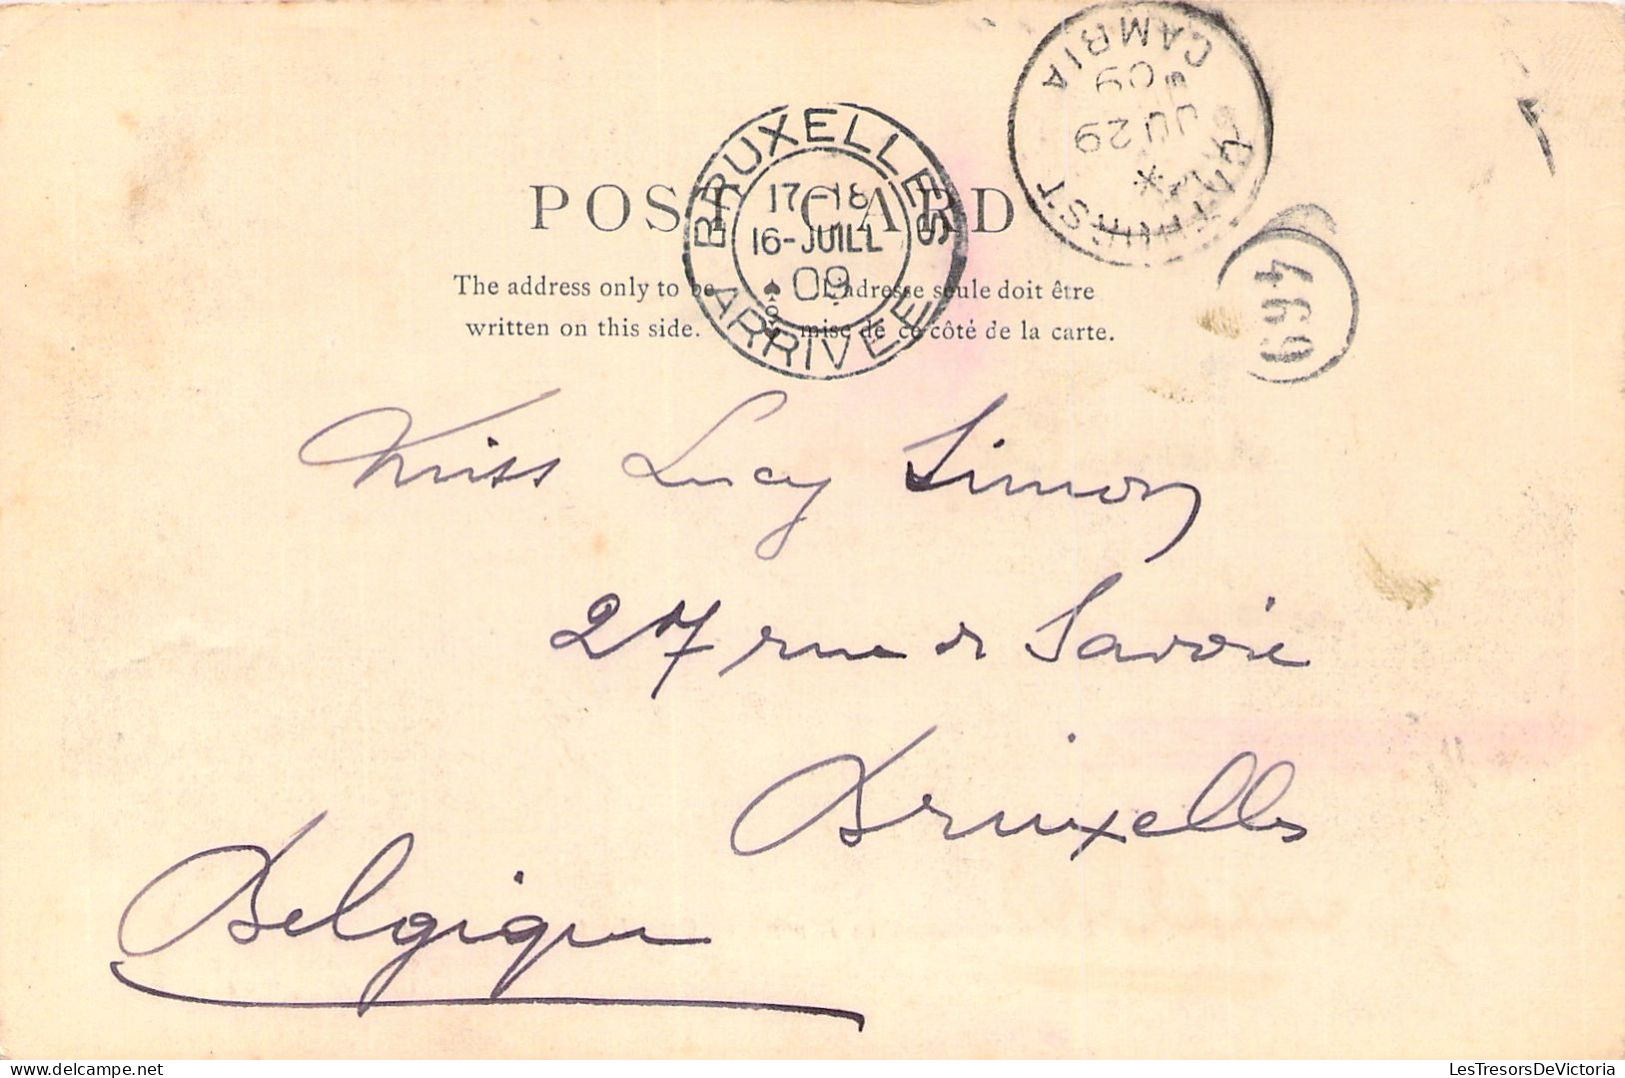 POST CARD
The address only to be written on this side.
L'adresse seule doit être mise de ce côté de la carte.
BRUXELLES
17-18
16-JUILL
09
ARRIVÉE
BATHURST
JU 29
09
GAMBIA
469
Miss Lucy Simon
27 rue de Savoie
Bruxelles
Belgique
LesTresorsDeVictoria